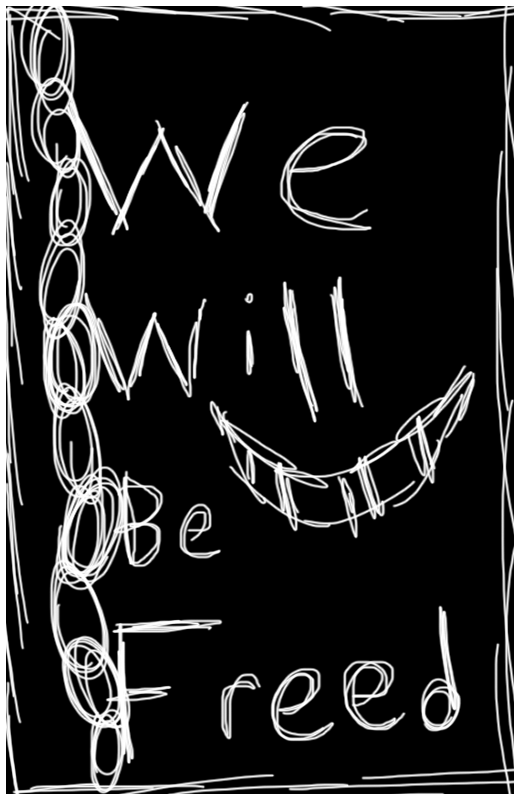 We
Will
Be
Freed